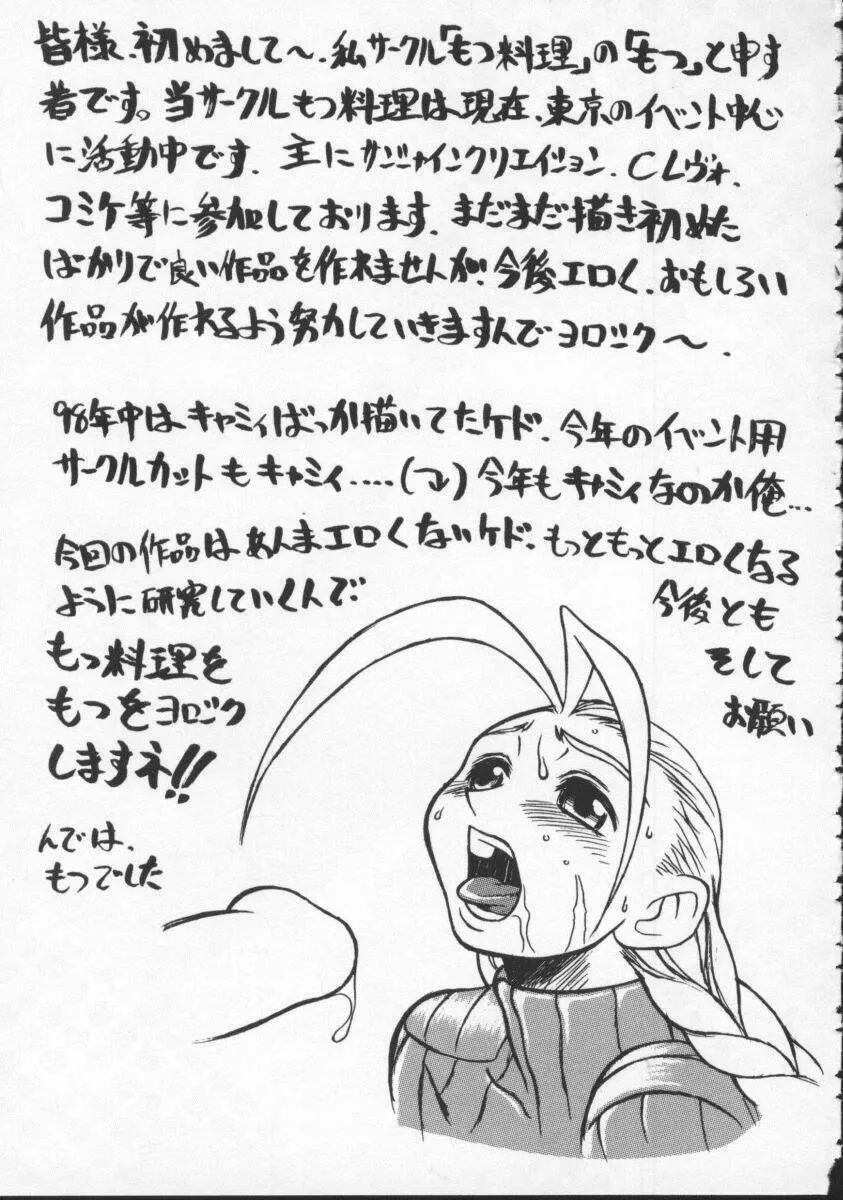 皆様、初めまして〜、私サークル「もつ料理」の「もつ」と申す
者です。当サークルもつ料理は現在、東京のイベント中心
に活動中です。主にサンシャインクリエイション、Cレヴォ、
コミケ等に参加しております。まだまだ描き初めた
ばかりで良い作品を作れませんが、今後エロく、おもしろい
作品が作れるよう努力していきますんでヨロシク〜.
98年中はキャミィばっか描いてたケド、今年のイベント用
サークルカットもキャミィ....(つ)今年もキャミィなのか俺...
今回の作品はあんまエロくないケド、もっともっとエロくなる
ように研究していくんで
今後とも
もつ料理を
そして
もつをヨロシク
お願い
しますネ!!
んでは、
もつでした